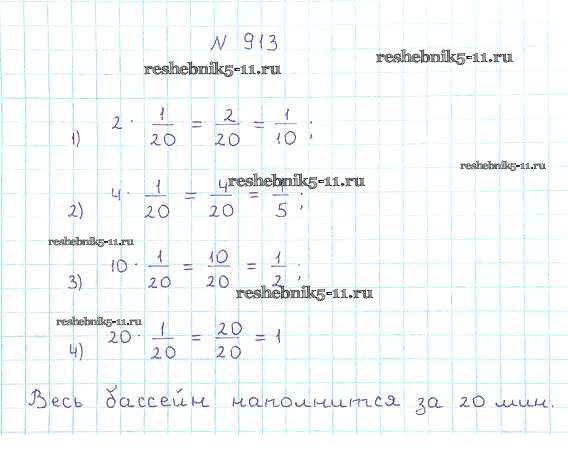 N 913
reshebnik5-11.ru
reshebnik5-11.ru
1) 2 · 1/20 = 2/20 = 1/10 ;
reshebnik5-11.ru
2) 4 · 1/20 = 4/20 = 1/5 ;
reshebnik5-11.ru
reshebnik5-11.ru
3) 10 · 1/20 = 10/20 = 1/2 ;
reshebnik5-11.ru
reshebnik5-11.ru
4) 20 · 1/20 = 20/20 = 1
Весь бассейн наполнится за 20 мин.